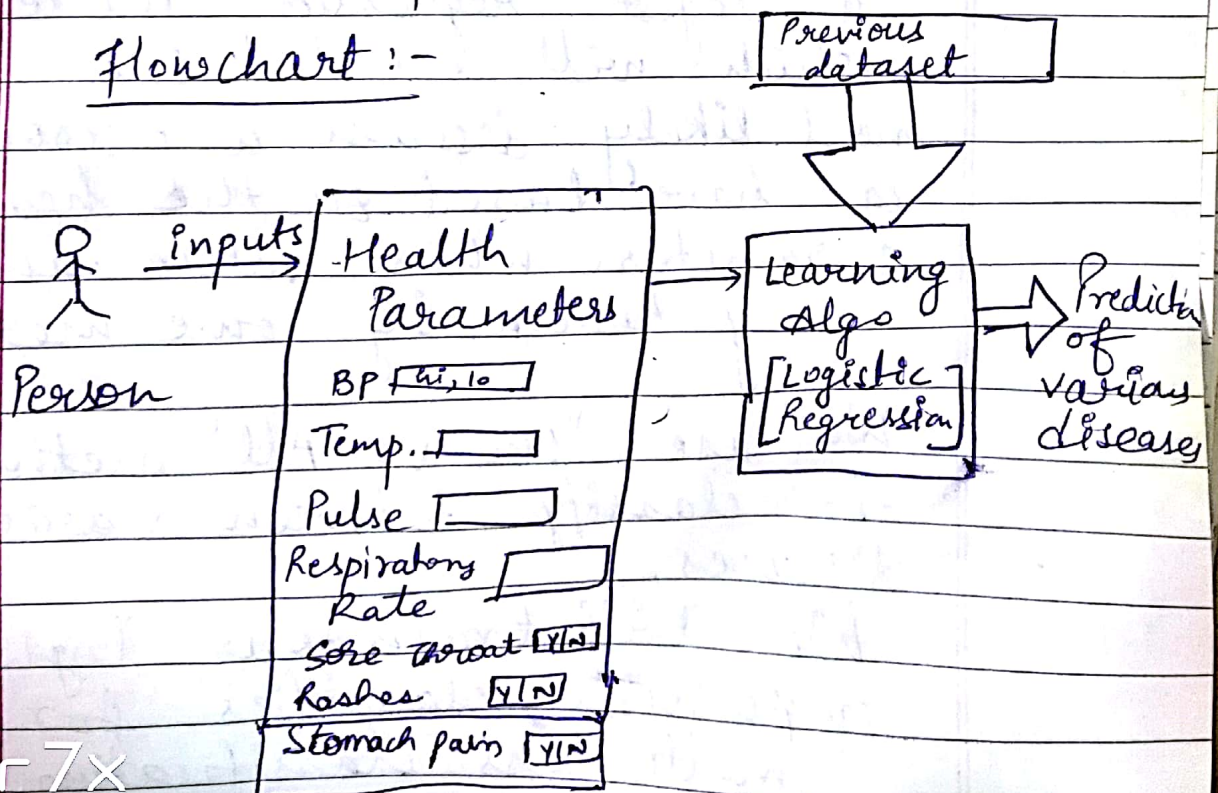 Flowchart :-
Previous
dataset
inputs
Person
Health
Parameters
BP hi, lo
Temp.
Pulse
Respiratory
Rate
Sore Throat Y|N
Rashes Y|N
Stomach pain Y|N
Learning
Algo
[Logistic
Regression]
Prediction
of
various
diseases
r 7x